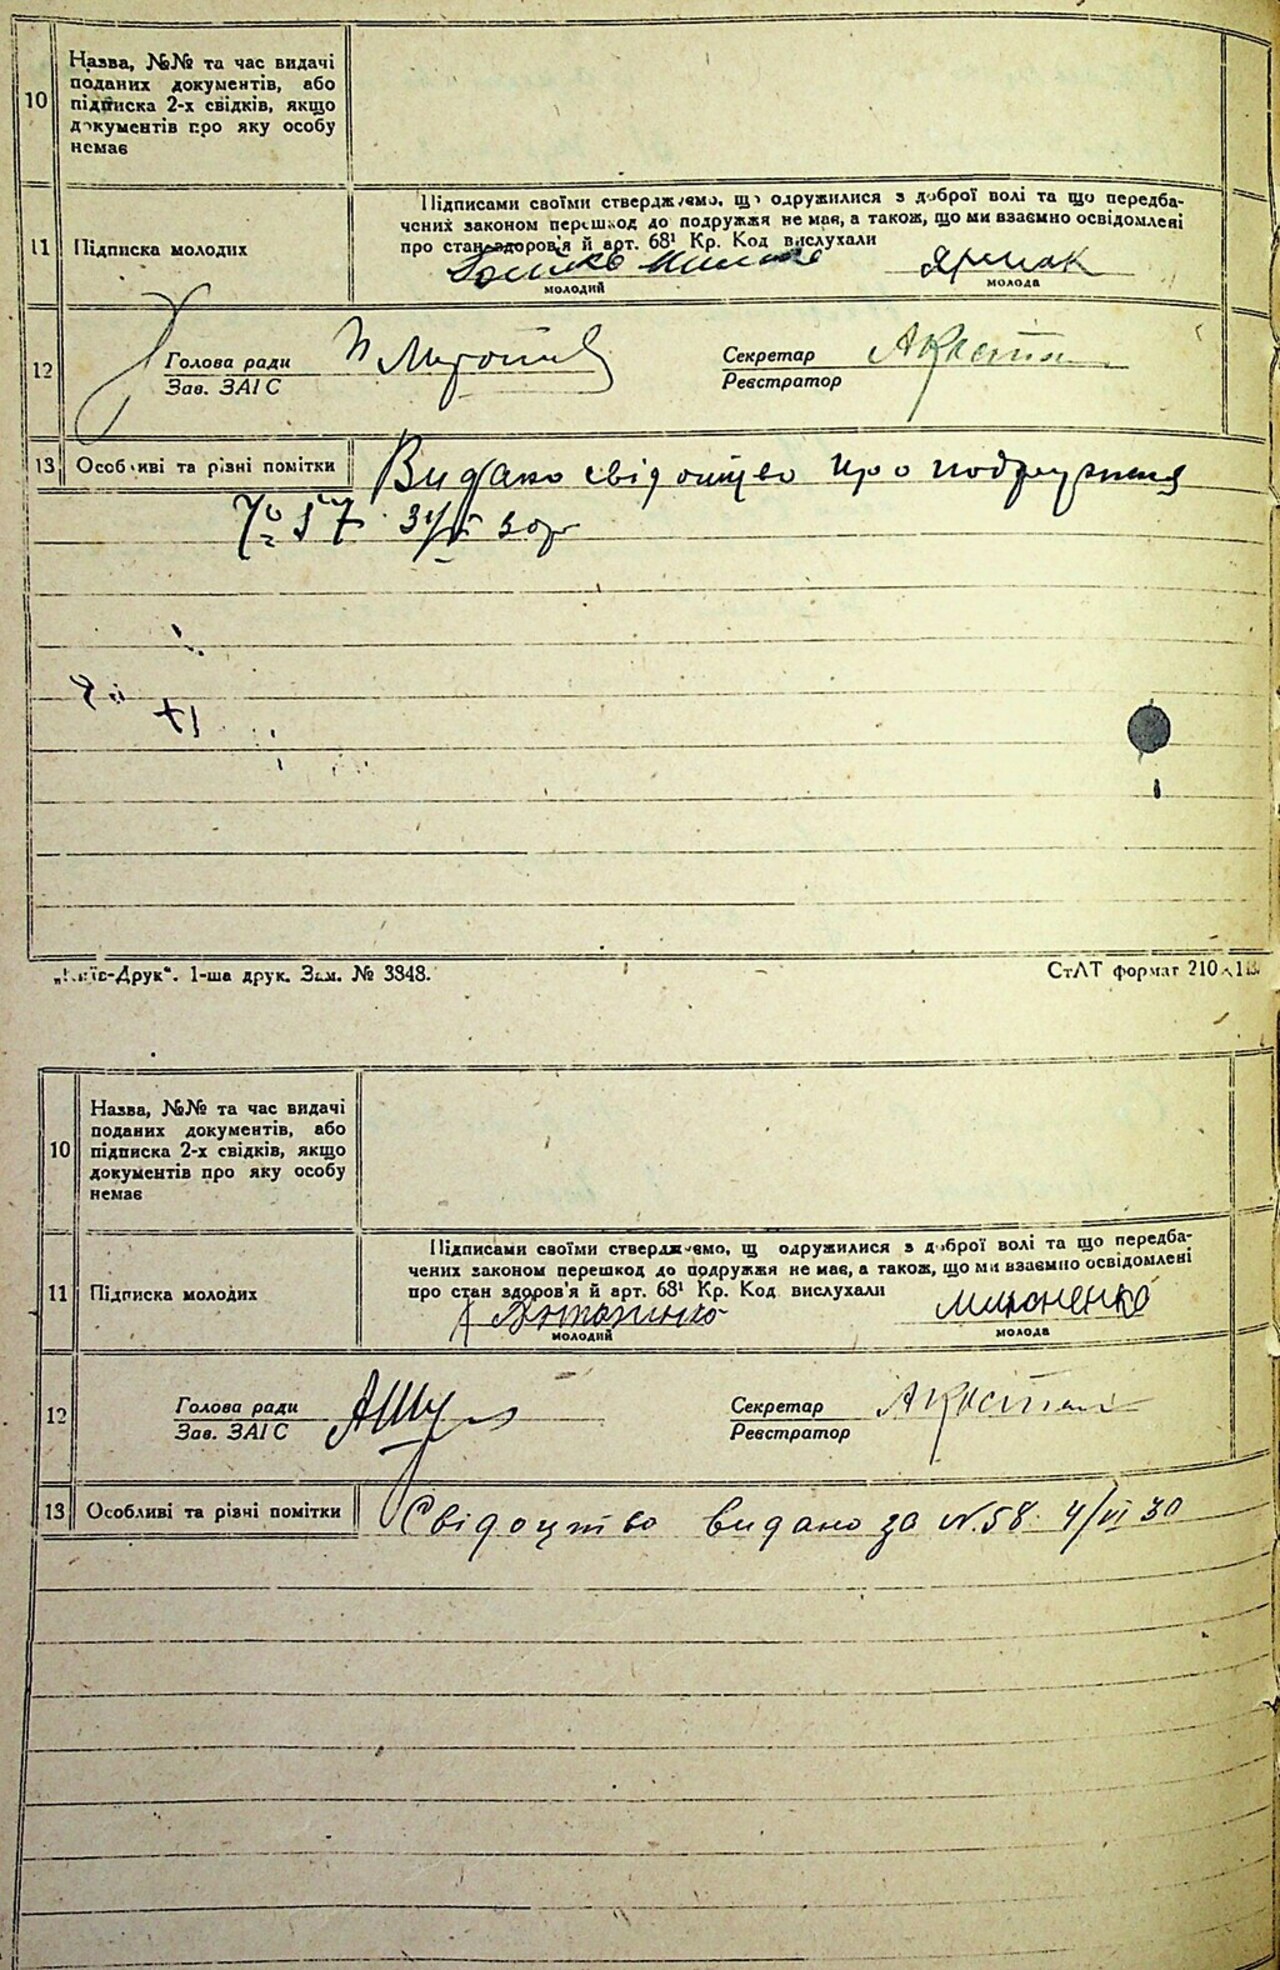 10
Назва, №№ та час видачі
поданих документів, або
підписка 2-х свідків, якщо
документів про яку особу
немає
11
Підписка молодих
Підписами своїми стверджуємо, що одружилися з доброї волі та що передба-
чених законом перешкод до подружжя не має, а також, що ми взаємно освідомлені
про стан здоров'я й арт. 68¹ Кр. Код вислухали
молодий
Ярмак
молода
12
Голова ради
Зав. ЗАГС
Секретар
Реєстратор
13
Особливі та різні помітки
Видано свідоцтво про подружжя
№ 57 30р
„Київ-Друк“. 1-ша друк. Зам. № 3848.
СтАТ формат 210
10
Назва, №№ та час видачі
поданих документів, або
підписка 2-х свідків, якщо
документів про яку особу
немає
11
Підписка молодих
Підписами своїми стверджуємо, щ одружилися з доброї волі та що передба-
чених законом перешкод до подружжя не має, а також, що ми взаємно освідомлені
про стан здоров'я й арт. 68¹ Кр. Код вислухали
молодий
Мироненко
молода
12
Голова ради
Зав. ЗАГС
Секретар
Реєстратор
13
Особливі та різні помітки
Свідоцтво видано за N.58. 4/VI 30